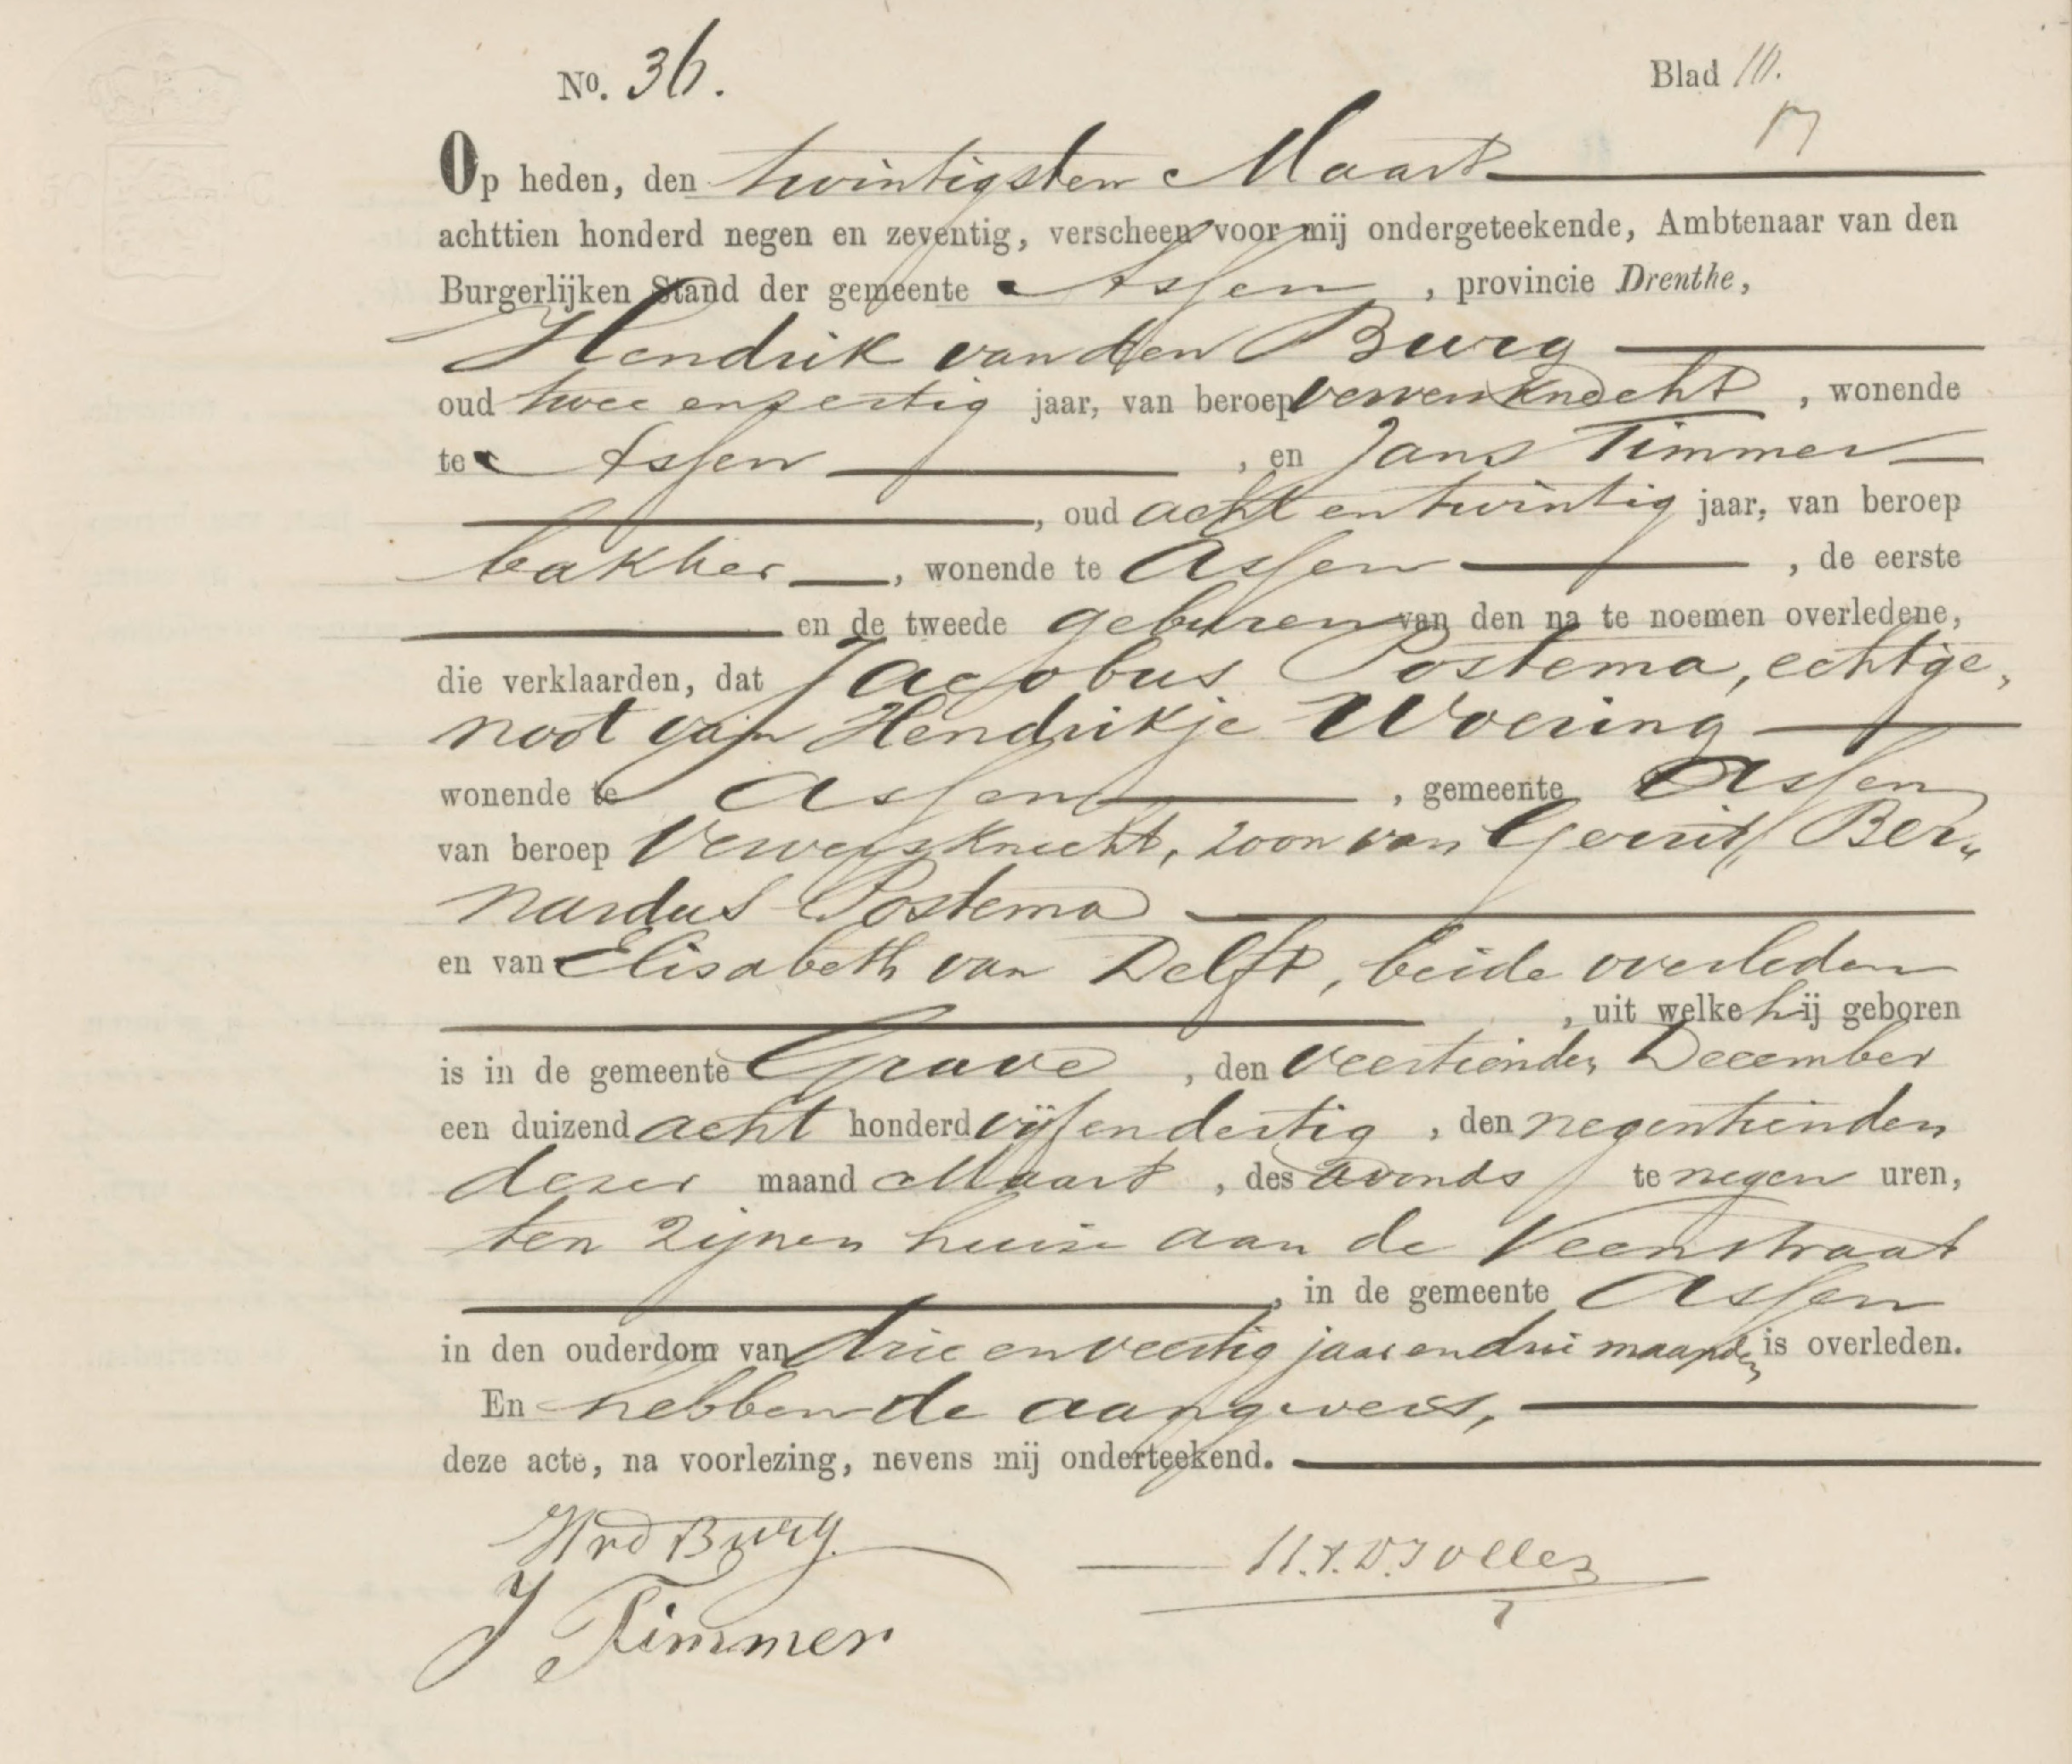 No. 36.
Blad 10.
Op heden, den twintigsten Maart
achttien honderd negen en zeventig, verscheen voor mij ondergeteekende, Ambtenaar van den
Burgerlijken Stand der gemeente Assen, provincie Drenthe,
Hendrik van den Burg
oud twee en zestig jaar, van beroep verwersknecht, wonende
te Assen, en Jans Timmer
, oud acht en twintig jaar, van beroep
bakker, wonende te Assen, de eerste
en de tweede geburen van den na te noemen overledene,
die verklaarden, dat Jacobus Postema, echtge„
noot van Hendrikje Woering
wonende te Assen, gemeente Assen
van beroep Verwersknecht, zoon van Gerrit Ber„
nardus Postema
en van Elisabeth van Delft, beide overleden
, uit welke hij geboren
is in de gemeente Grave, den veertienden December
een duizend acht honderd vijf en dertig, den negentienden
dezer maand Maart, des avonds te negen uren,
ten zijnen huise aan de Veenstraat
, in de gemeente Assen
in den ouderdom van drie en veertig jaar en drie maanden is overleden.
En hebben de aangevers,
deze acte, na voorlezing, nevens mij onderteekend.
Hvd Burg
J Timmer